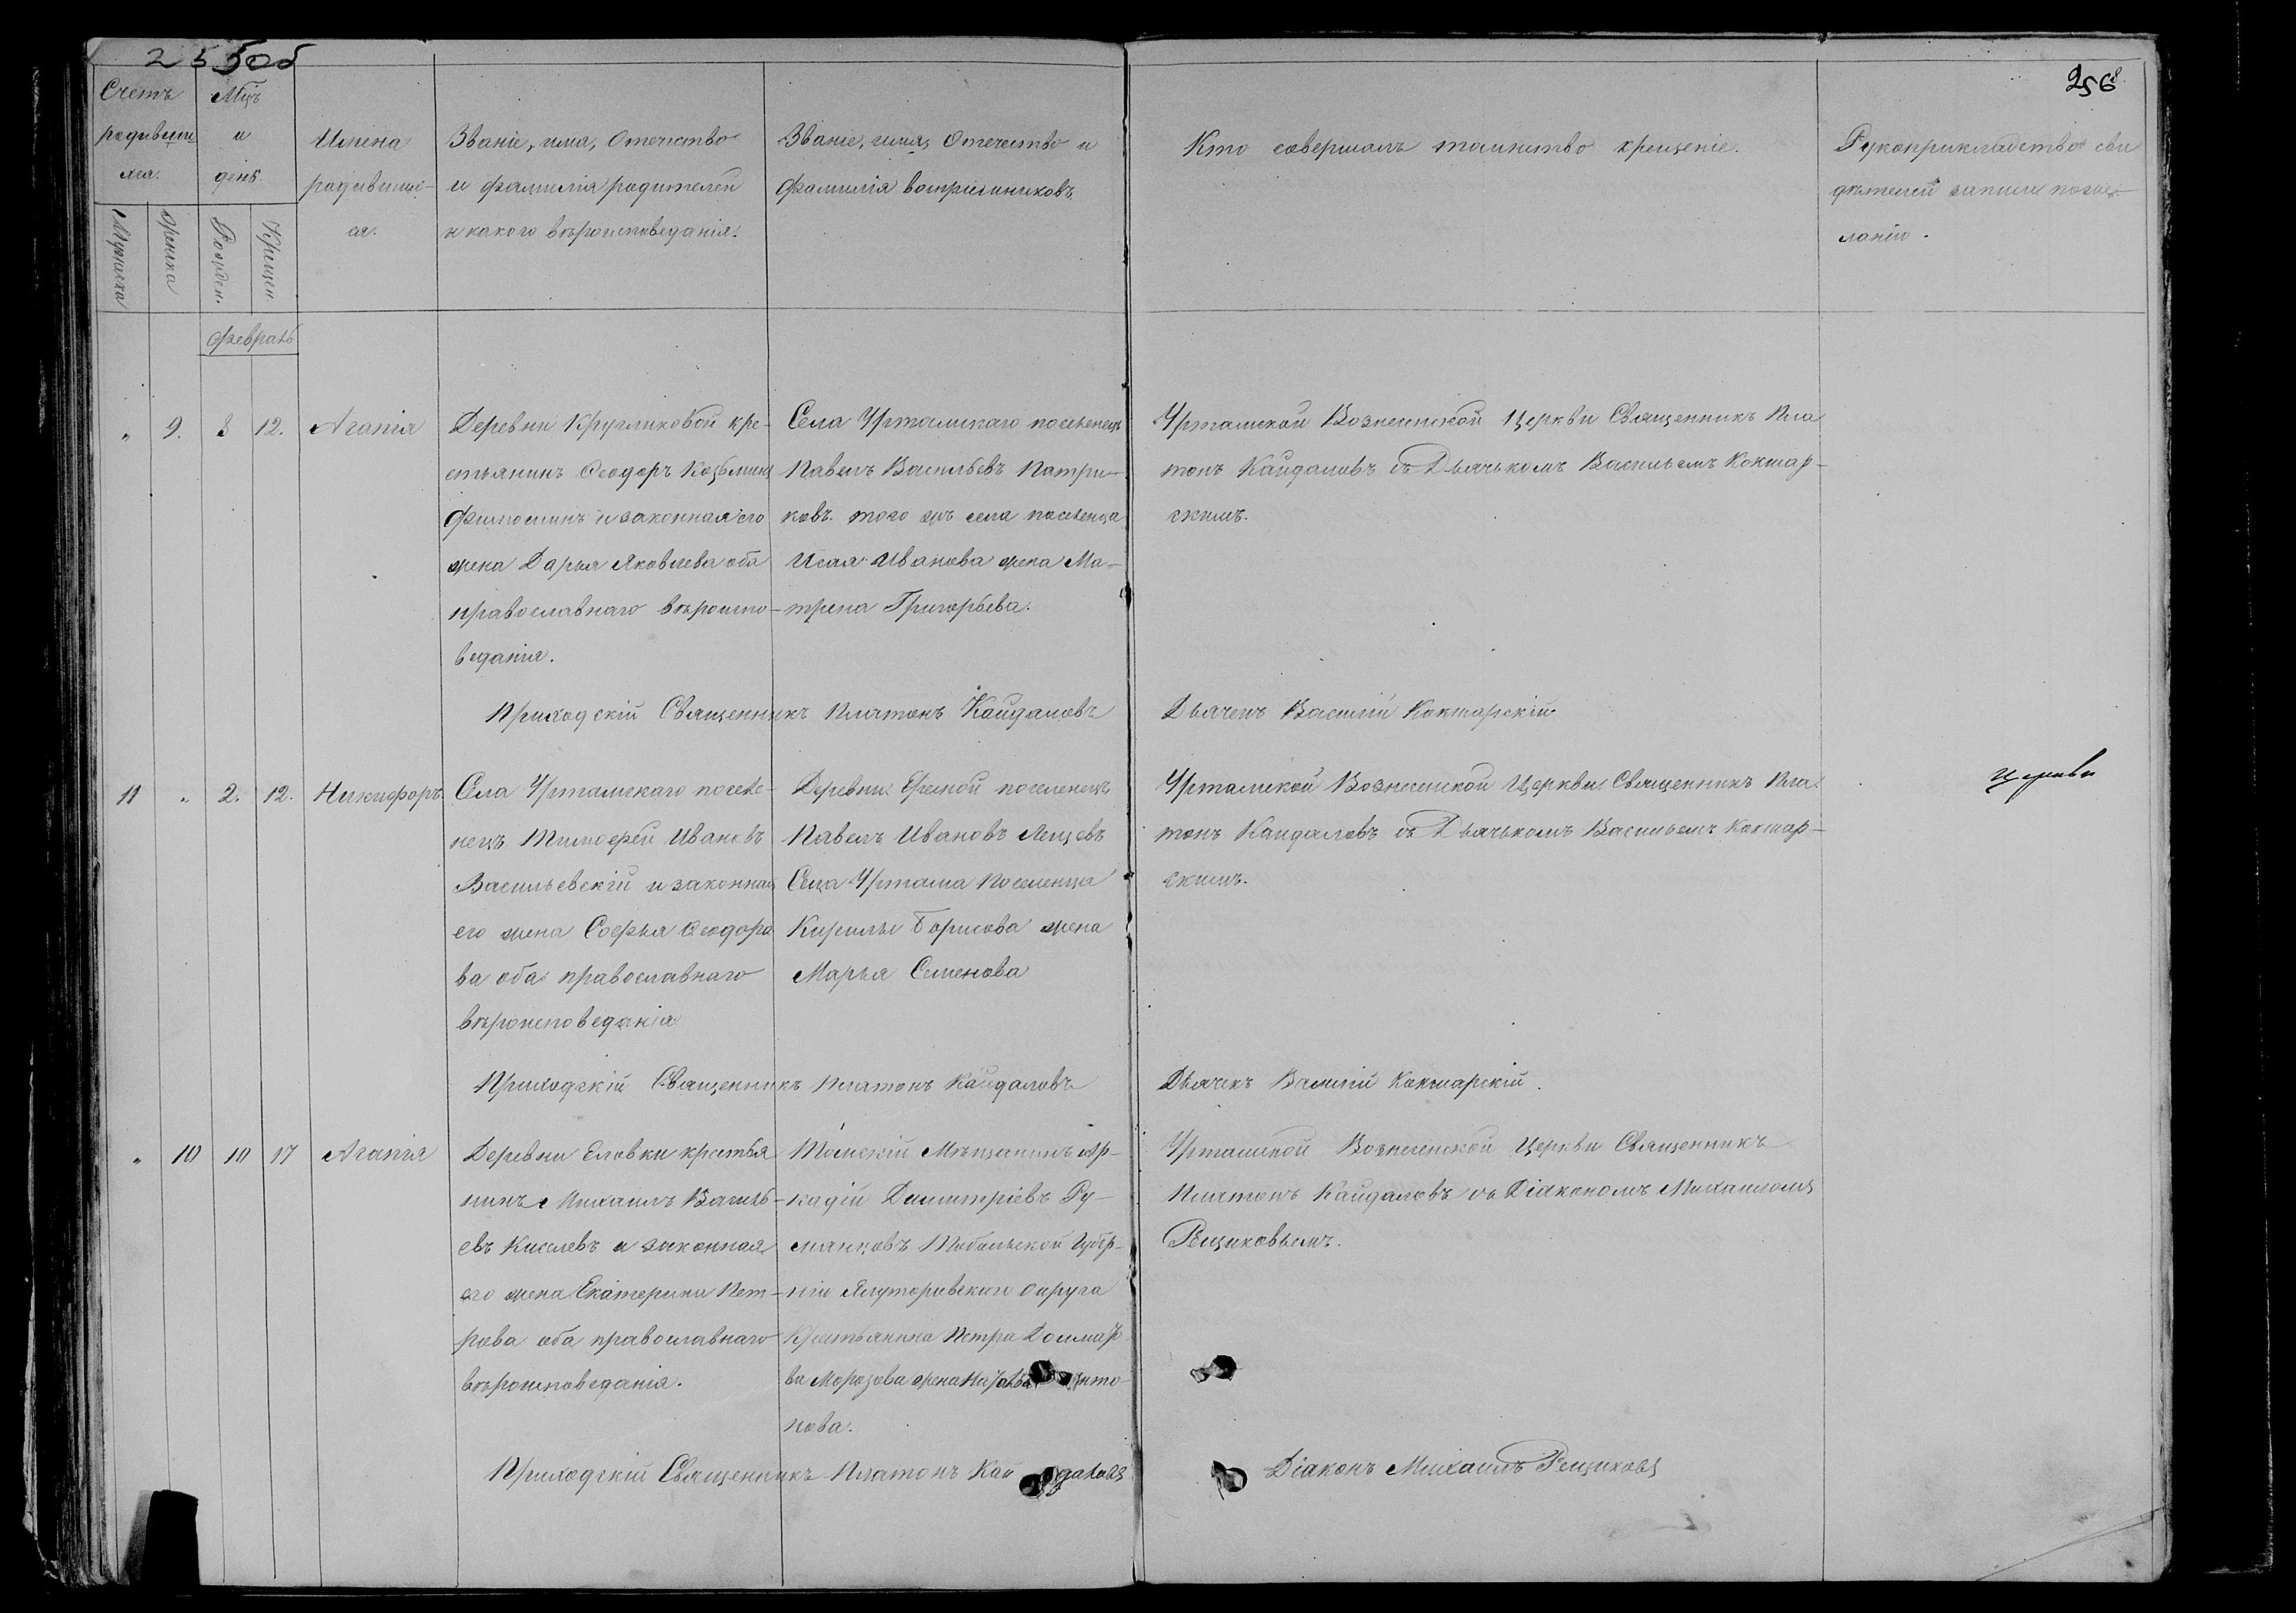 255об
256
Счетъ родивших ся.
Мужска
женска
Мѣць и день.
Рожден.
Крещен.
Имена родившие ся.
Званіе, имя, Отечество
и фамилія родителей
и какого вѣроисповеданія.
Званіе, имя, Отечество и
фамилія воспріемниковъ
Кто совершалъ таинство крещеніе.
Рукоприкладство сви
дѣтелей записи по же
ланію.
февраль
„ 9. 8 12. Агапія
Деревни Кругликовой кре-
стьянинъ Ѳеодоръ Козьминъ
и законная его
жена Дарья Яковлева оба
православнаго вѣроиспо-
веданія.
Села Уртамскаго поселенецъ
Павелъ Васильевъ Патри-
ковъ. того жъ села поселенца
Исая Иванова жена Ма-
трена Григорьева.
Уртамской Вознесенской Церкви Священникъ Пла
тонъ Кайдаловъ съ Дьячькомъ Васильемъ Кокшар-
скимъ.
Приходскій Священникъ Платонъ Кайдаловъ
Дьячекъ Василій Кокшарскій
11 „ 2. 12. Никифоръ
Села Уртамскаго поселе-
нецъ Тимофей Ивановъ
Васильевскій и законная
его жена Софья Ѳеодоро
ва оба православнаго
вѣроисповеданія
Деревни Еремной поселенецъ
Павелъ Ивановъ Лещевъ
Села Уртама Поселенца
Кирилы Борисова жена
Марья Семенова
Уртамской Вознесенской Церкви Священникъ Пла
тонъ Кайдаловъ съ Дьячькомъ Васильемъ Кокшар-
скимъ.
церкви
Приходскій Священникъ Платонъ Кайдаловъ
Дьячекъ Василій Кокшарскій.
„ 10 10 17 Агапія
Деревни Еловки крестья
нинъ Михаилъ Василь-
евъ Киселевъ и законная
его жена Екатерина Пет-
рова оба православнаго
вѣроисповеданія.
Томскій Мѣщанинъ Ар-
кадій Димитріевъ Ру-
мянцовъ Тобольской Губер-
ніи Ялуторовскаго округа
Крестьянина Петра
ва Морозова жена
нова.
Уртамской Вознесенской Церкви Священникъ
Платонъ Кайдаловъ съ Діакономъ Михаиломъ
Рещиковымъ.
Приходскій Священникъ Платонъ Кайдаловъ
Діаконъ Михаилъ Рещиковъ